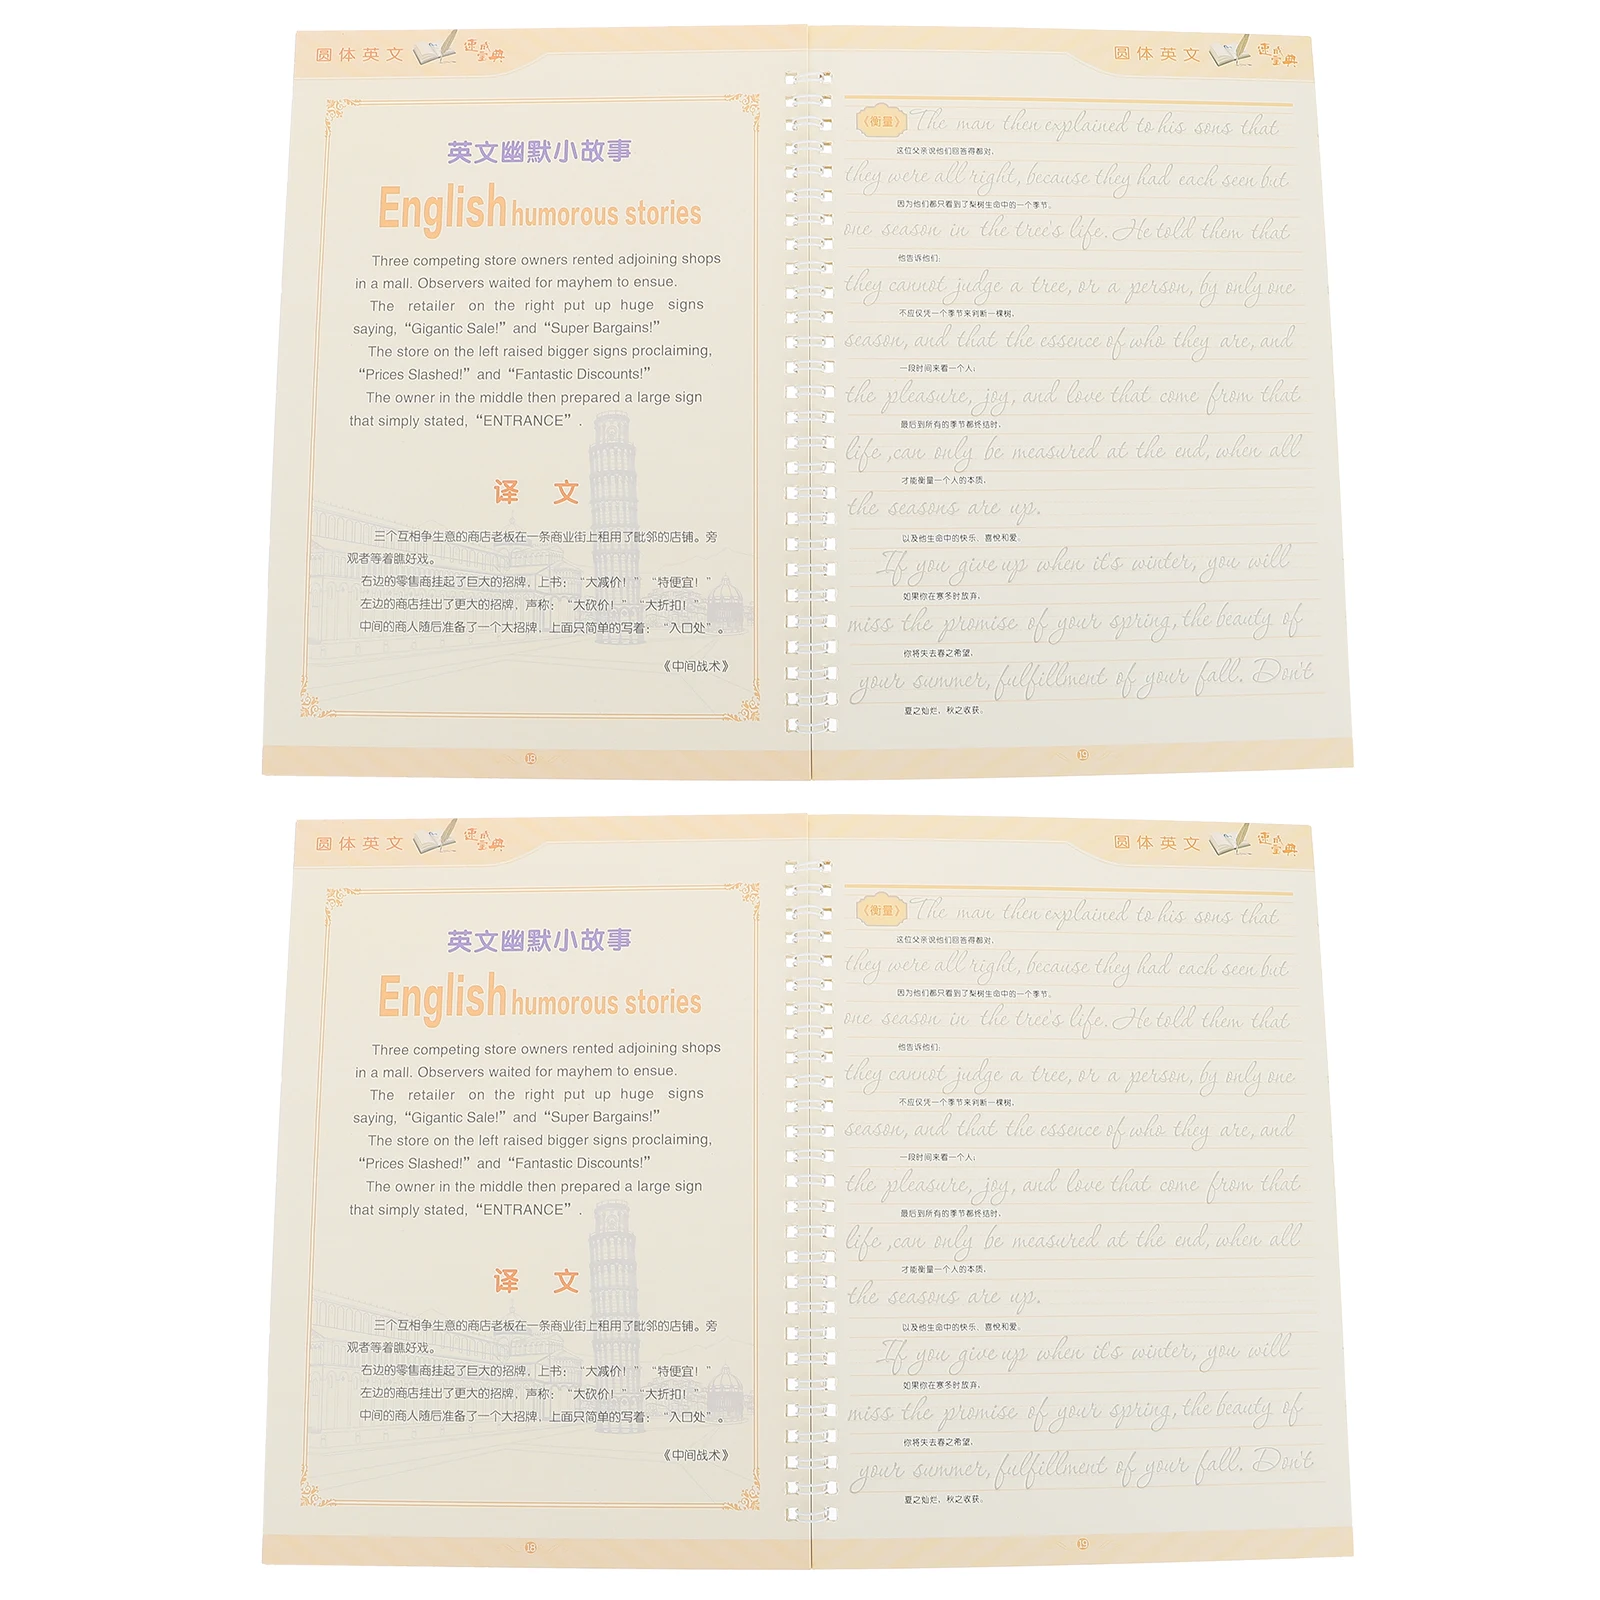 圆体英文
速成宝典
英文幽默小故事
English humorous stories
Three competing store owners rented adjoining shops
in a mall. Observers waited for mayhem to ensue.
The retailer on the right put up huge signs
saying, “Gigantic Sale!” and “Super Bargains!”
The store on the left raised bigger signs proclaiming,
“Prices Slashed!” and “Fantastic Discounts!”
The owner in the middle then prepared a large sign
that simply stated, “ENTRANCE” .
译 文
三个互相争生意的商店老板在一条商业街上租用了毗邻的店铺。旁
观者等着瞧好戏。
右边的零售商挂起了巨大的招牌，上书：“大减价！”“特便宜！”
左边的商店挂出了更大的招牌，声称：“大砍价！”“大折扣！”
中间的商人随后准备了一个大招牌，上面只简单的写着：“入口处”。
《中间战术》
18
圆体英文
速成宝典
《衡量》 The man then explained to his sons that
这位父亲说他们回答得都对，
they were all right, because they had each seen but
因为他们都只看到了梨树生命中的一个季节。
one season in the tree's life. He told them that
他告诉他们：
they cannot judge a tree, or a person, by only one
不应仅凭一个季节来判断一棵树，
season, and that the essence of who they are, and
一段时间来看一个人；
the pleasure, joy, and love that come from that
最后到所有的季节都终结时，
life ,can only be measured at the end, when all
才能衡量一个人的本质，
the seasons are up.
以及他生命中的快乐、喜悦和爱。
If you give up when it's winter, you will
如果你在寒冬时放弃，
miss the promise of your spring, the beauty of
你将失去春之希望，
your summer, fulfillment of your fall. Don't
夏之灿烂，秋之收获。
19
圆体英文
速成宝典
英文幽默小故事
English humorous stories
Three competing store owners rented adjoining shops
in a mall. Observers waited for mayhem to ensue.
The retailer on the right put up huge signs
saying, “Gigantic Sale!” and “Super Bargains!”
The store on the left raised bigger signs proclaiming,
“Prices Slashed!” and “Fantastic Discounts!”
The owner in the middle then prepared a large sign
that simply stated, “ENTRANCE” .
译 文
三个互相争生意的商店老板在一条商业街上租用了毗邻的店铺。旁
观者等着瞧好戏。
右边的零售商挂起了巨大的招牌，上书：“大减价！”“特便宜！”
左边的商店挂出了更大的招牌，声称：“大砍价！”“大折扣！”
中间的商人随后准备了一个大招牌，上面只简单的写着：“入口处”。
《中间战术》
18
圆体英文
速成宝典
《衡量》 The man then explained to his sons that
这位父亲说他们回答得都对，
they were all right, because they had each seen but
因为他们都只看到了梨树生命中的一个季节。
one season in the tree's life. He told them that
他告诉他们：
they cannot judge a tree, or a person, by only one
不应仅凭一个季节来判断一棵树，
season, and that the essence of who they are, and
一段时间来看一个人；
the pleasure, joy, and love that come from that
最后到所有的季节都终结时，
life ,can only be measured at the end, when all
才能衡量一个人的本质，
the seasons are up.
以及他生命中的快乐、喜悦和爱。
If you give up when it's winter, you will
如果你在寒冬时放弃，
miss the promise of your spring, the beauty of
你将失去春之希望，
your summer, fulfillment of your fall. Don't
夏之灿烂，秋之收获。
19